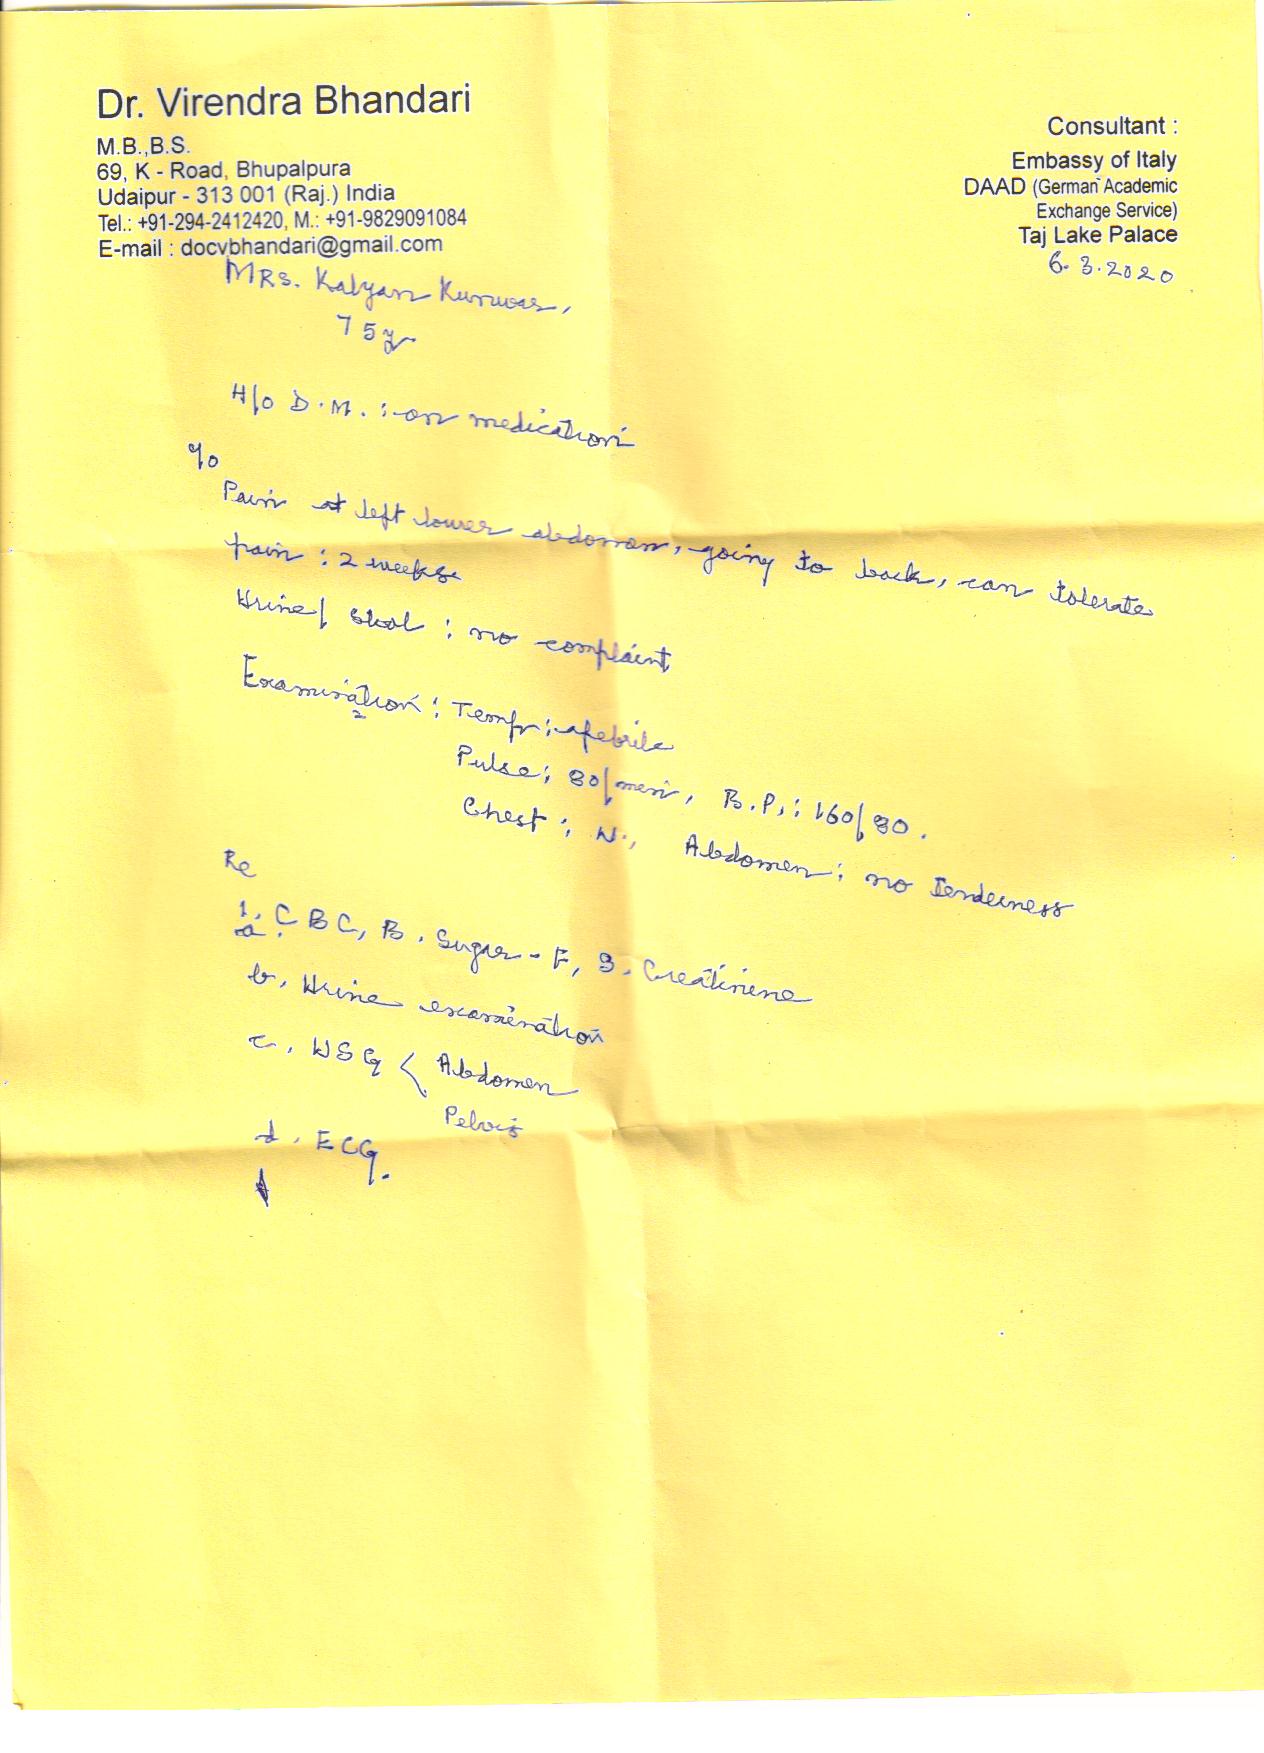 Dr. Virendra Bhandari
M.B.,B.S.
69, K - Road, Bhupalpura
Udaipur - 313 001 (Raj.) India
Tel.: +91-294-2412420, M.: +91-9829091084
E-mail : docvbhandari@gmail.com
Consultant :
Embassy of Italy
DAAD (German Academic
Exchange Service)
Taj Lake Palace
6.3.2020
MRs. Kalyan Kunwar,
75y
H/o D.M. : on medication
c/o
Pain at left lower abdomen, going to back, can tolerate
pain : 2 weeks
Urine/ Stool : no complaint
Examination : Temp : afebrile
Pulse : 80/min, B.P. : 160/80.
Chest : N., Abdomen : no tenderness
Re
1. C B C, B. Sugar - F, S. Creatinine
a.
b. Urine examination
c. USG < Abdomen
Pelvis
d. ECG.